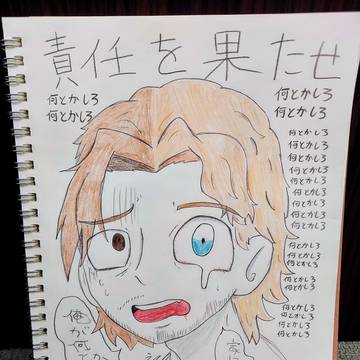 責任を果たせ
何とかしろ
何とかしろ
何とかしろ
何とかしろ
何とかしろ
何とかしろ
何とかしろ
何とかしろ
何とかしろ
何とかしろ
何とかしろ
何とかしろ
何とかしろ
何とかしろ
何とかしろ
何とかしろ
何とかしろ
何とかしろ
何とかしろ
何とかしろ
何とかしろ
何とかしろ
俺が
何とか